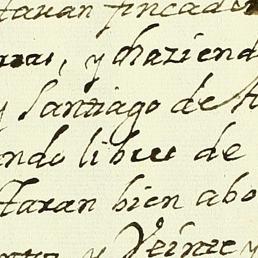 taran fincado
y haziend
y Santiago de A
ando libre de
taran bien abo
y Veinte y